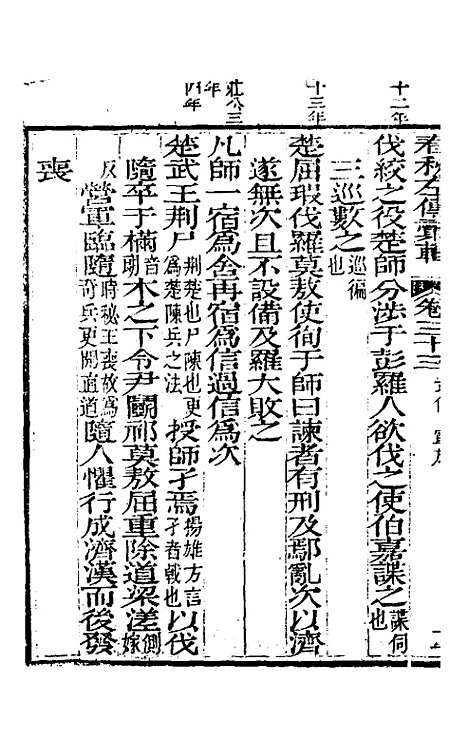 春秋左傳宣 卷三十三
十二年
伐絞之役楚師分涉于彭羅人欲伐之使伯嘉諜之諜伺也
三巡數之巡徧也
十三年
楚屈瑕伐羅莫敖使徇于師曰諫者有刑及鄢亂次以濟
遂無次且不設備及羅大敗之
莊公三年
凡師一宿為舍再宿為信過信為次
四年
楚武王荆尸荆楚也尸陳也更為楚陳兵之法授師孑焉揚雄方言孑者戟也以伐
隨卒于樠音朗木之下令尹鬬祁莫敖屈重除道梁溠側嫁
反營軍臨隨時秘王喪故為奇兵更開直道隨人懼行成濟漢而後發
喪